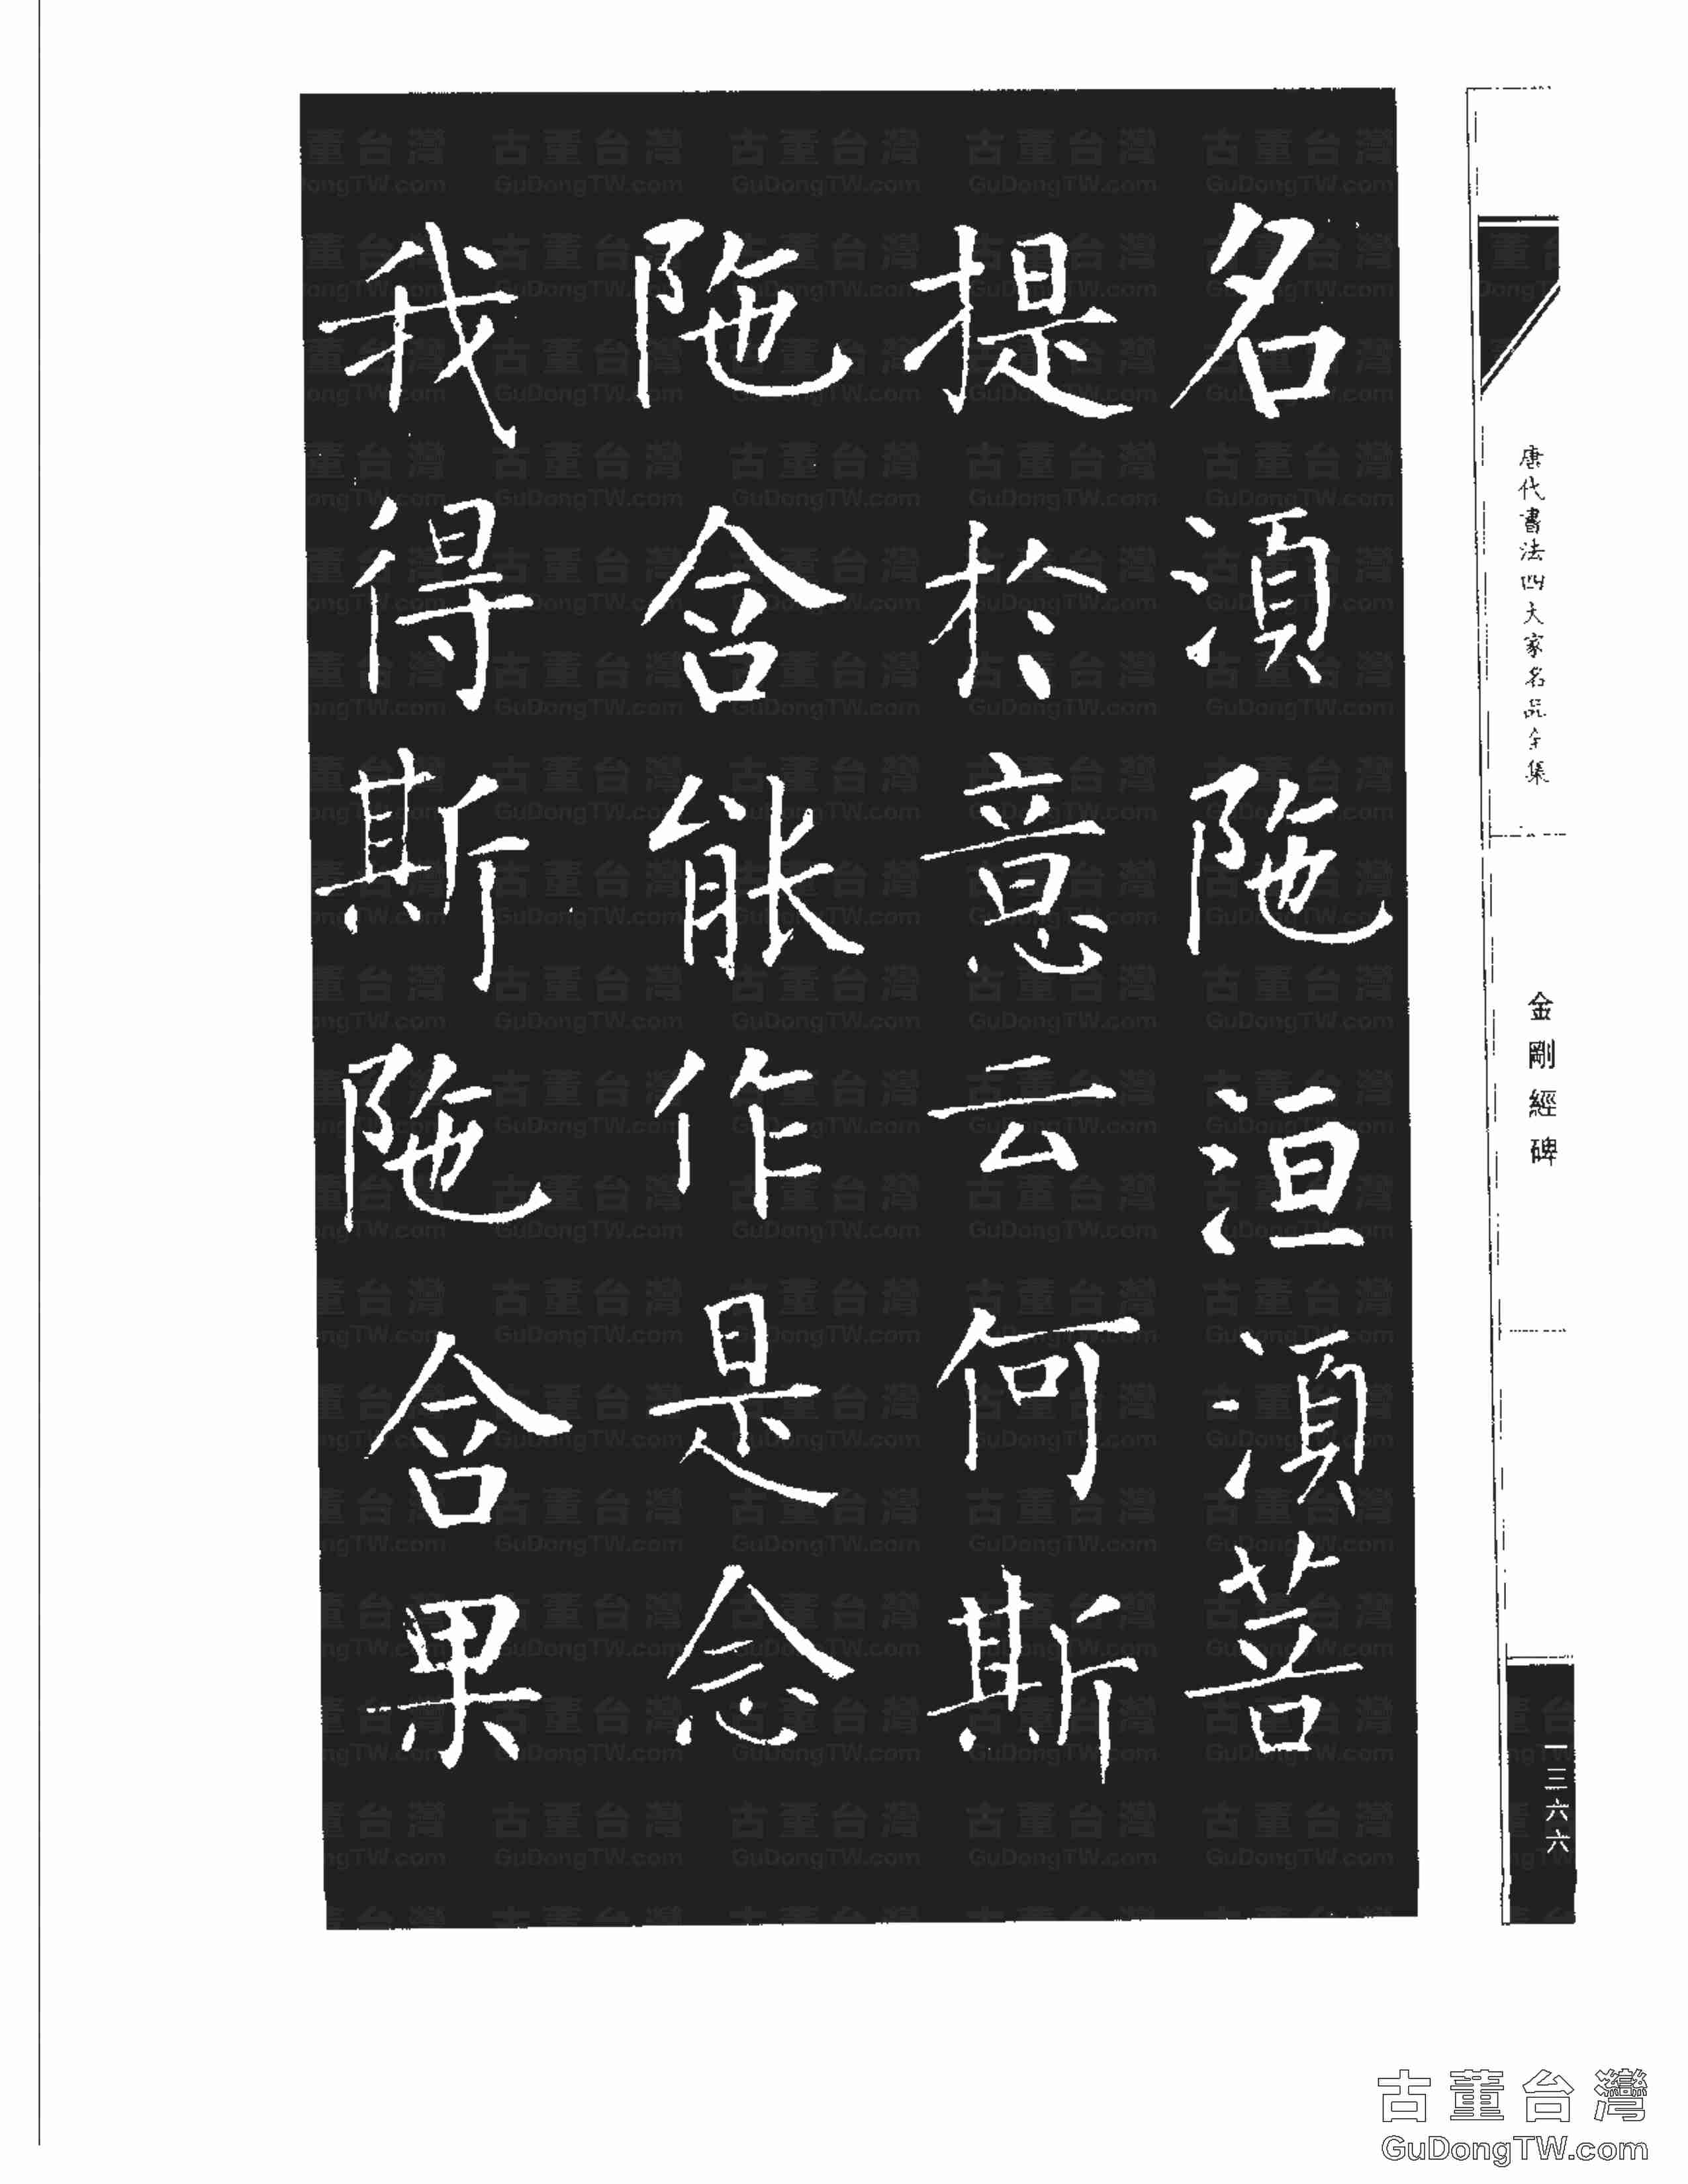 名湏陁洹湏菩
提於意云何斯
陁含能作是念
我得斯陁含果
唐代書法四大家名品全集
金剛經碑
一三六六
古董台灣
GuDongTW.com